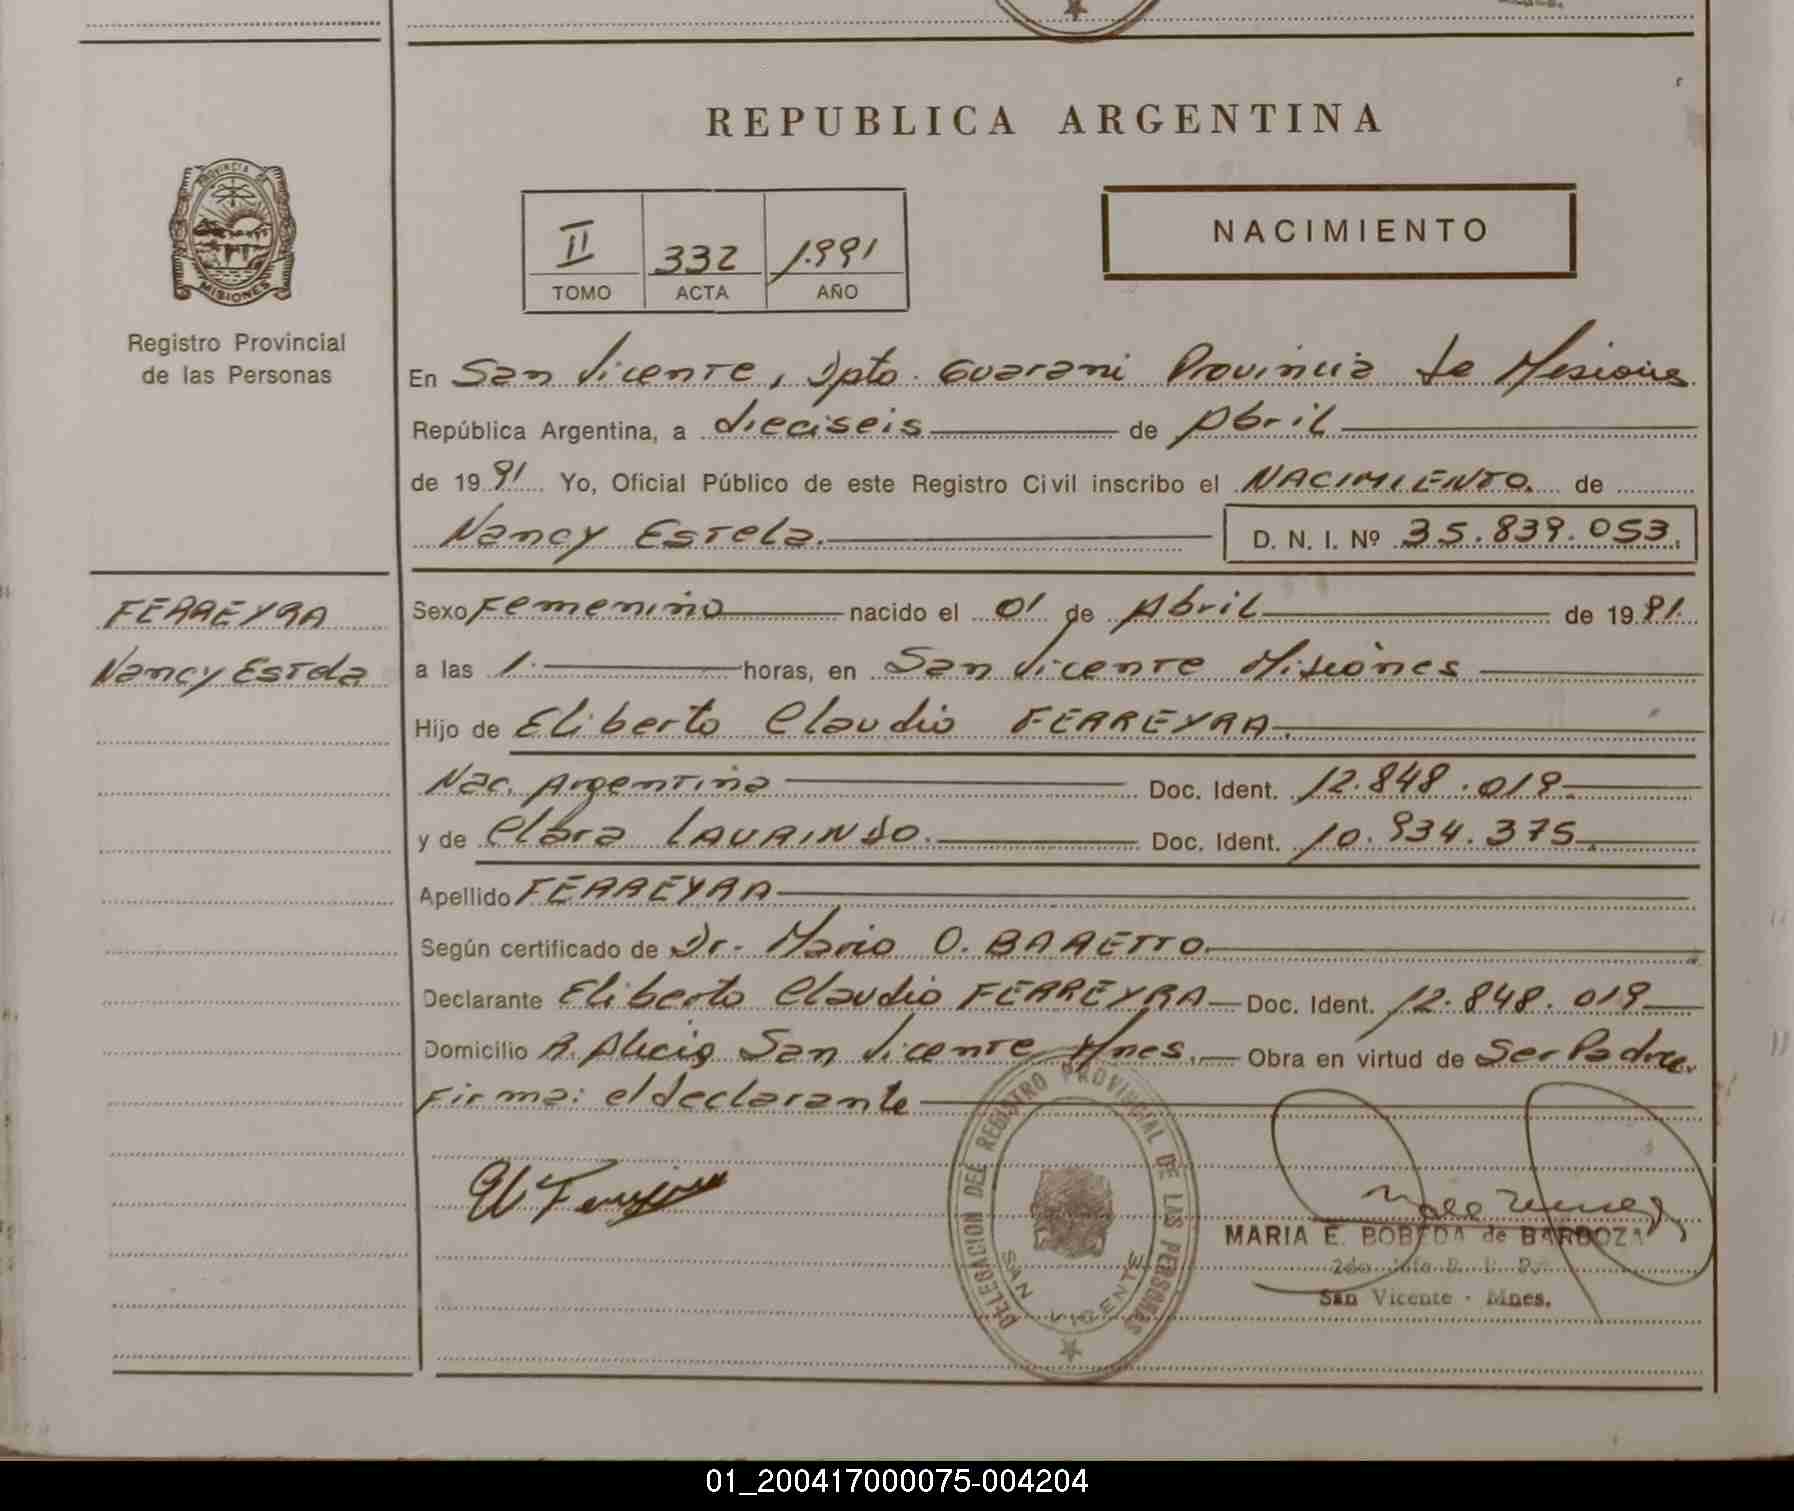 REPUBLICA ARGENTINA
II 332 1.991
TOMO ACTA AÑO
NACIMIENTO
PROVINCIA DE
MISIONES
Registro Provincial
de las Personas
En San Vicente, Dpto. Guarani Provincia de Misiones
República Argentina, a dieciseis de Abril
de 1991 Yo, Oficial Público de este Registro Civil inscribo el NACIMIENTO. de
Nancy Estela. D. N. I. Nº 35.839.053.
FERREYRA
Nancy Estela
Sexo Femenino nacido el 01 de Abril de 1991.
a las 1. horas, en San Vicente Misiones
Hijo de Eliberto Claudio FERREYRA.
Nac. Argentina Doc. Ident. 12.848.019.
y de Clara LAURINDO. Doc. Ident. 10.934.375.
Apellido FERREYRA
Según certificado de Dr. Mario O. BARETTO.
Declarante Eliberto Claudio FERREYRA Doc. Ident. 12.848.019
Domicilio A. Alecia San Vicente Mnes. Obra en virtud de Ser Padre.
Firma: el declarante
DELEGACION DEL REGISTRO PROVINCIAL DE LAS PERSONAS
SAN VICENTE
MARIA E. BOBEDA de BARBOZA
San Vicente - Mnes.
01_200417000075-004204